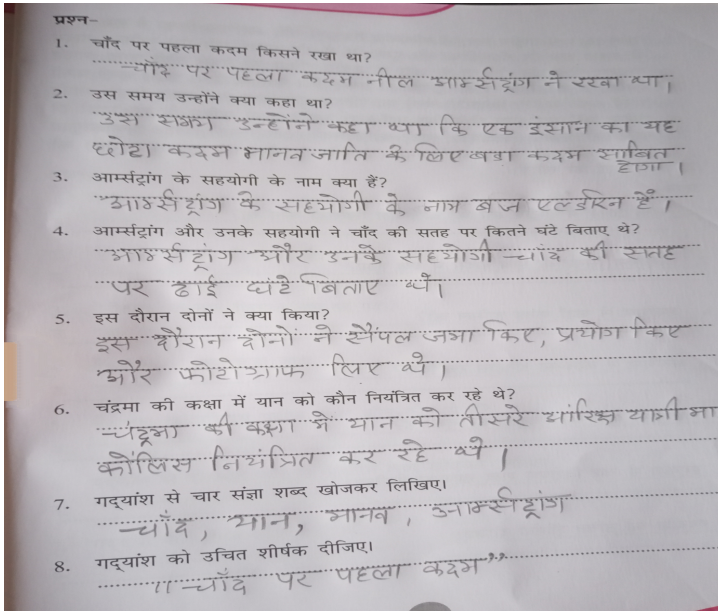 प्रश्न–
1. चाँद पर पहला कदम किसने रखा था?
चाँद पर पहला कदम नील आर्म्सट्रांग ने रखा था।
2. उस समय उन्होंने क्या कहा था?
उस समय उन्होंने कहा था कि एक इंसान का यह
छोटा कदम मानव जाति के लिए बड़ा कदम साबित
होगा।
3. आर्म्सट्रांग के सहयोगी के नाम क्या हैं?
आर्म्सट्रांग के सहयोगी के नाम बज एल्डरिन हैं।
4. आर्म्सट्रांग और उनके सहयोगी ने चाँद की सतह पर कितने घंटे बिताए थे?
आर्म्सट्रांग और उनके सहयोगी चाँद की सतह
पर ढाई घंटे बिताए थे।
5. इस दौरान दोनों ने क्या किया?
इस दौरान दोनों ने सैंपल जमा किए, प्रयोग किए
और फोटोग्राफ लिए थे।
6. चंद्रमा की कक्षा में यान को कौन नियंत्रित कर रहे थे?
चंद्रमा की कक्षा में यान को तीसरे यात्री मा
कोलिंस नियंत्रित कर रहे थे।
7. गद्यांश से चार संज्ञा शब्द खोजकर लिखिए।
चाँद, यान, मानव, आर्म्सट्रांग
8. गद्यांश को उचित शीर्षक दीजिए।
"चाँद पर पहला कदम"